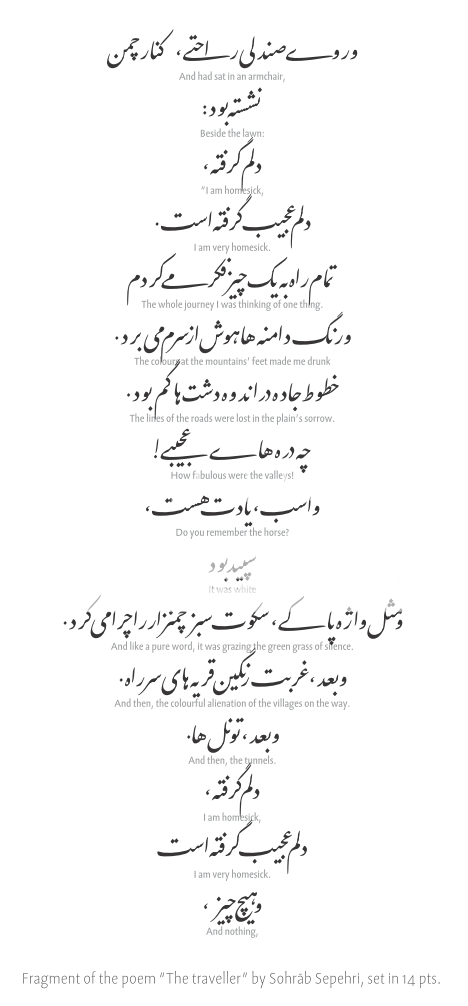 و روے صندلی راحتے، کنار چمن
And had sat in an armchair,
نشسته بود:
Beside the lawn:
دلم گرفته،
"I am homesick,
دلم عجیب گرفته است.
I am very homesick.
تمام راه به یک چیز فکر مے کردم
The whole journey I was thinking of one thing.
و رنگ دامنه ها هوش از سرم می برد.
The colour at the mountains' feet made me drunk
خطوط جاده در اندوه دشت ها گم بود.
The lines of the roads were lost in the plain's sorrow.
چه دره هاے عجیبے!
How fabulous were the valleys!
و اسب، یادت هست،
Do you remember the horse?
سپید بود
It was white
و مثل واژه پاکے، سکوت سبز چمنزار را چرا می کرد.
And like a pure word, it was grazing the green grass of silence.
و بعد، غربت رنگین قریه های سر راه.
And then, the colourful alienation of the villages on the way.
و بعد، تونل ها.
And then, the tunnels.
دلم گرفته،
I am homesick,
دلم عجیب گرفته است
I am very homesick.
و هیچ چیز،
And nothing,
Fragment of the poem "The traveller" by Sohrāb Sepehri, set in 14 pts.